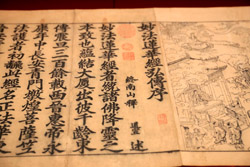 妙法蓮華經弘傳序
終南山釋 述
妙法蓮華經者統諸降靈之
本致也蘊結大夏出彼千齡東
傳震旦三百餘載西晉惠帝永
康年中長安青門燉煌菩薩竺
法護者初翻此經名正法華